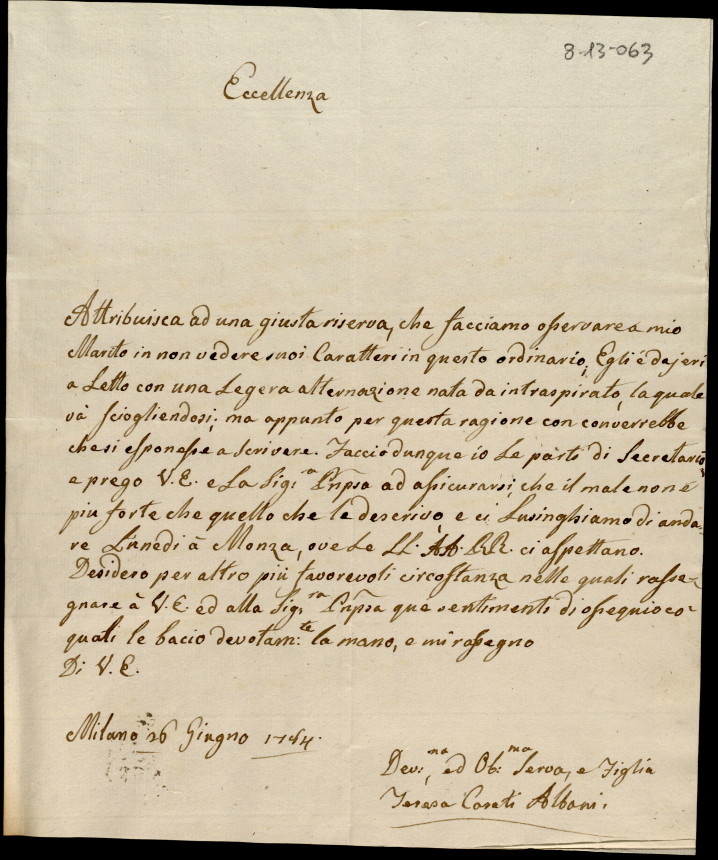 8-13-063
Eccellenza
Attribuisca ad una giusta riserva, che facciamo osservare a mio
Marito in non vedere suoi Caratteri in questo ordinario; Egli é da jeri
a Letto con una Legera alternazione nata da intraspirato, la quale
và sciogliendosi; ma appunto per questa ragione con converrebbe
che si esponesse a scrivere. Faccio dunque io Le parti di Secretario
e prego V. E. e La Sig:ra Prñpsa ad assicurarsi, che il male non é
piu forte che quello che le descrivo, e ci Lusinghiamo di anda=
re Lunedi à Monza, ove Le LL. AA. RR. ci aspettano.
Desidero per altro più favorevoli circostanza nelle quali rasse=
gnare à V. E. ed alla Sig:ra Prñpsa que sentimenti di ossequio co'
quali le bacio devotam:te la mano, e mi rassegno
Di V. E.
Milano 26 Giugno
Dev:ma, ed Ob:ma Serva, e Figlia
Teresa Casati Albani.